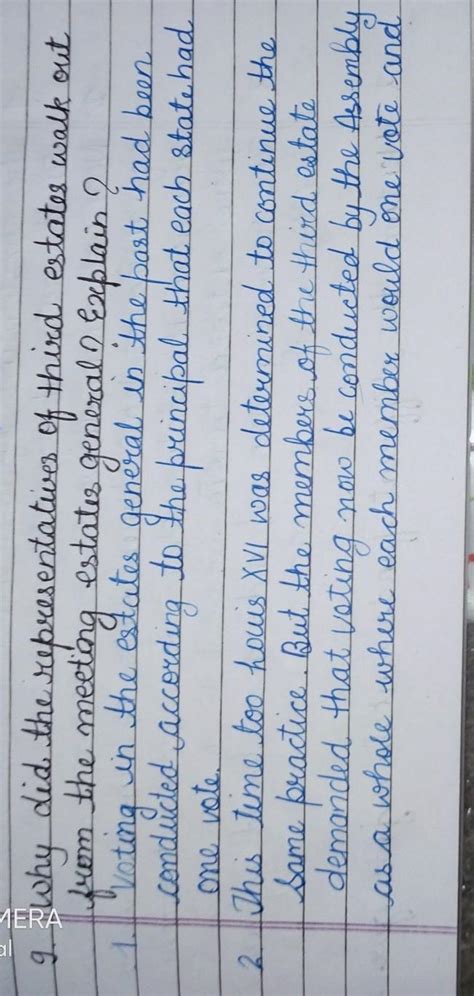 9. Why did the representatives of third estates walk out
from the meeting estates general? Explain?
1. Voting in the estates general in the past had been
conducted according to the principal that each state had
one vote.
2. This time too houis XVI was determined to continue the
same practice. But the members of the third estate
demanded that voting now be conducted by the Assembly
as a whole where each member would one vote and
MERA
al